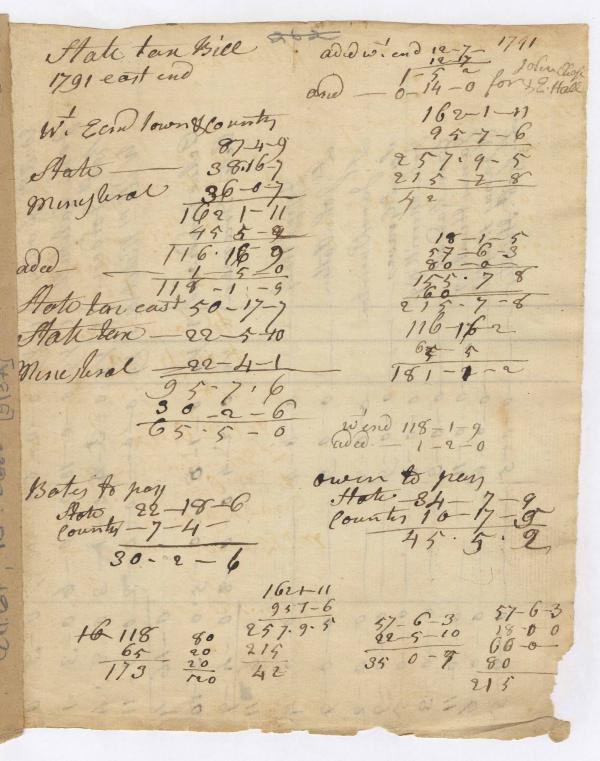 State tax Bill
1791 east end
Wt End town & County
87-4-9
State — 38.16-7
Minesteral 36-0-7
162 1-11
45 5-9
116.16 9
aded — 1 5 0
118-1-9
State tax east 50-17-7
State tax — 22-5-10
Minesteral — 22-4-1
95-7.6
30-2-6
65.5-0
Bates to pay
State 22-18-6
County — 7-4-
30-2-6
1791
aded wt end 12-7-
12 17
1-5 2
and — 0-14-0
for E. Hall
162-1-11
95-7-6
257.9-5
215-7-8
42
18-1-5
57-6-3
80 0
155.7 8
60
215-7-8
116-16-2
65-5
181-1-2
wt end 118-1-9
aded — 1-2-0
owen to pay
State — 34-7-9
County 10-17-5
45.5.2
16 118
65
173
80
20
20
120
162 1-11
957-6
257.9.5
215
42
57-6-3
22-5-10
35 0-5
57-6-3
18-0 0
60-0
80
215